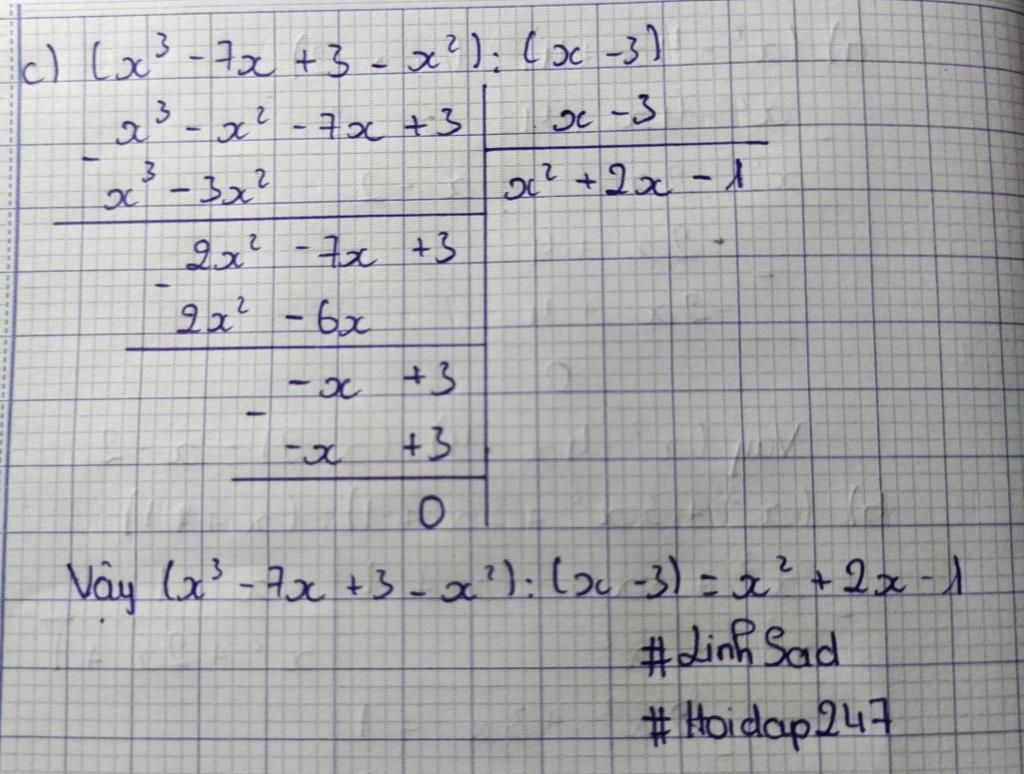 c) (x³ - 7x + 3 - x²) : (x - 3)
x³ - x² - 7x + 3 | x - 3
- x³ - 3x² | x² + 2x - 1
2x² - 7x + 3
- 2x² - 6x
-x + 3
- -x + 3
0
Vậy (x³ - 7x + 3 - x²) : (x - 3) = x² + 2x - 1
#Linh Sad
#Hoidap247